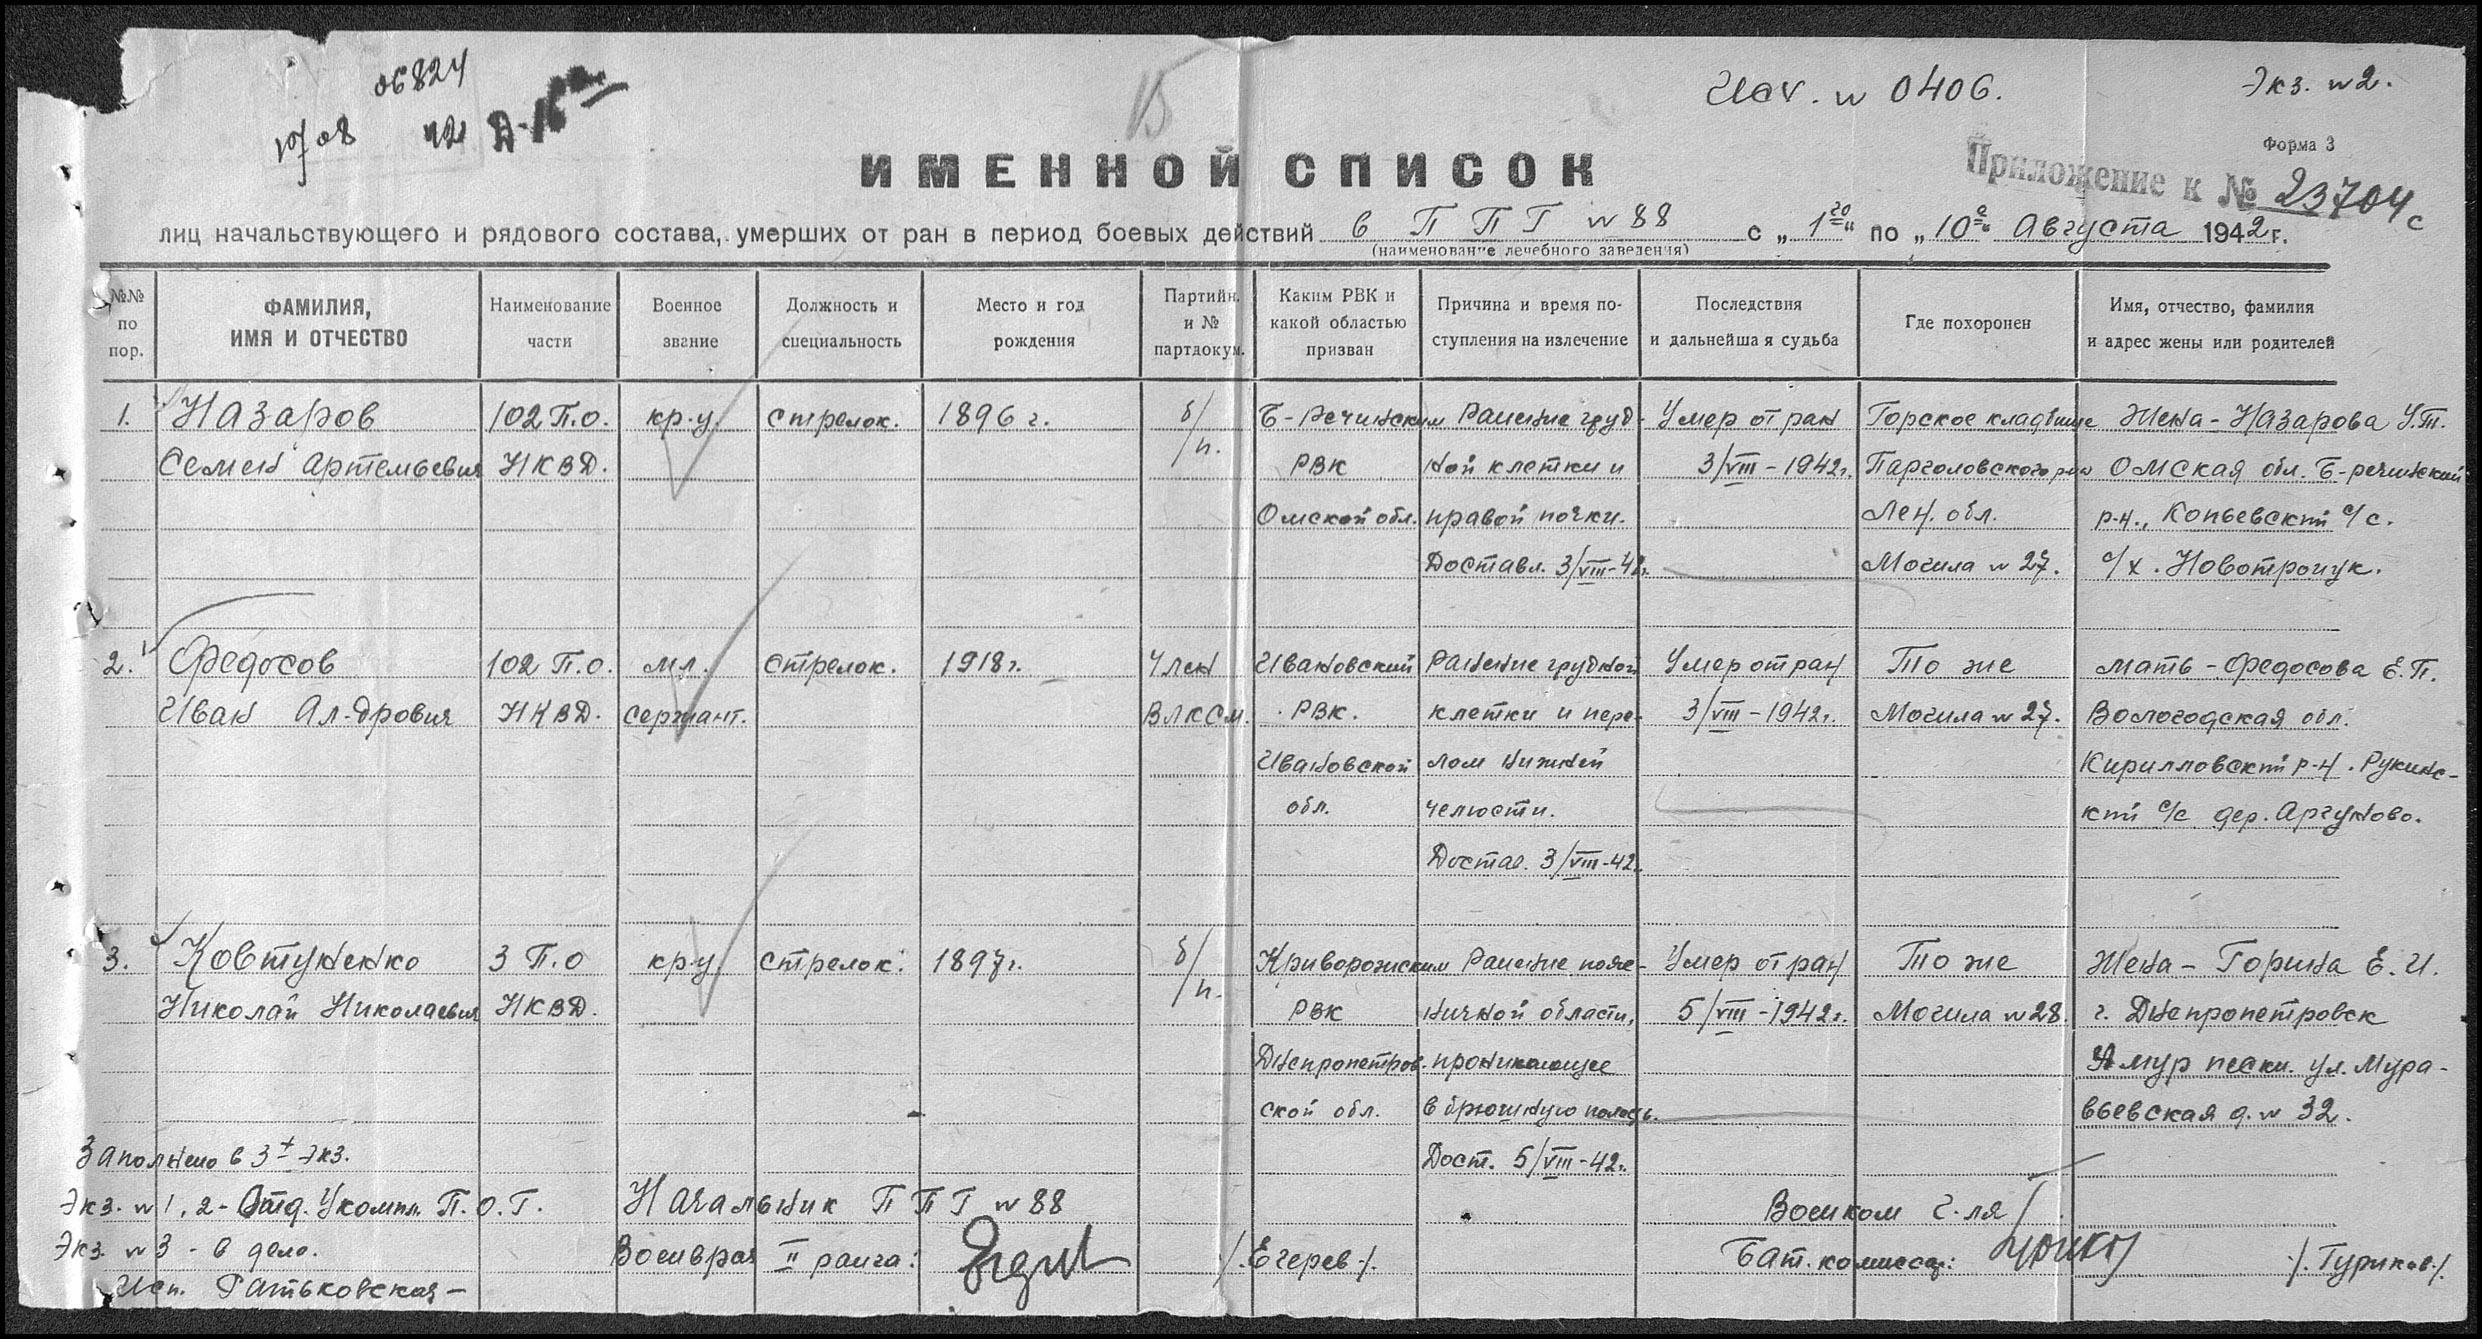 06824
Исх. № 0406.
Экз. № 2.
Форма 3
ИМЕННОЙ СПИСОК
Приложение к № 23704с
лиц начальствующего и рядового состава, умерших от ран в период боевых действий в ППГ № 88 с „1го“ по „10е“ Августа 1942 г.
(наименование лечебного заведения)
№№ по пор.
ФАМИЛИЯ, ИМЯ И ОТЧЕСТВО
Наименование части
Военное звание
Должность и специальность
Место и год рождения
Партийн. и № партдокум.
Каким РВК и какой областью призван
Причина и время поступления на излечение
Последствия и дальнейшая судьба
Где похоронен
Имя, отчество, фамилия и адрес жены или родителей
1. Назаров 102 П.О. кр-ц стрелок. 1896 г. б/п. Б-Речинским Ранение груд- Умер от ран Горское кладбище Жена - Назарова У.Т.
Семен Артемьевич НКВД. РВК ной клетки и 3/VIII-1942г. Парголовского р-на Омская обл. Б-речинский
Омской обл. правой почки. Лен. обл. р-н., Копьевский с/с.
Доставл. 3/VIII-42г. Могила № 27. с/х. Новотроицк.
2. Федосов 102 П.О. мл. стрелок. 1918г. Член Ивановский Ранение грудной Умер от ран То же Мать - Федосова Е.П.
Иван Ал-дрович НКВД. сержант. ВЛКСМ. РВК. клетки и пере- 3/VIII-1942г. Могила № 27. Вологодская обл.
Ивановской лом нижней Кирилловский р-н. Рукинс-
обл. челюсти. кий с/с дер. Аргуново.
Достав. 3/VIII-42г.
3. Ковтуненко 3 П.О кр-ц стрелок. 1897г. б/п. Криворожским Ранение пояс- Умер от ран То же Жена - Горина Е.И.
Николай Николаевич НКВД. РВК ничной области, 5/VIII-1942г. Могила № 28. г. Днепропетровск
Днепропетров- проникающее Амур пески. ул. Мура-
ской обл. в брюшную полость. вьевская д. № 32.
Дост. 5/VIII-42г.
Заполнено в 3х экз.
Экз. № 1, 2 - Отд. Укомпл. П.О.Г. Начальник ППГ № 88 Военком г-ля
Экз. № 3 - в дело. Военврач II ранга: /.Егерев./. Бат. комиссар: /.Туриков./.
Исп. Ратьковская -